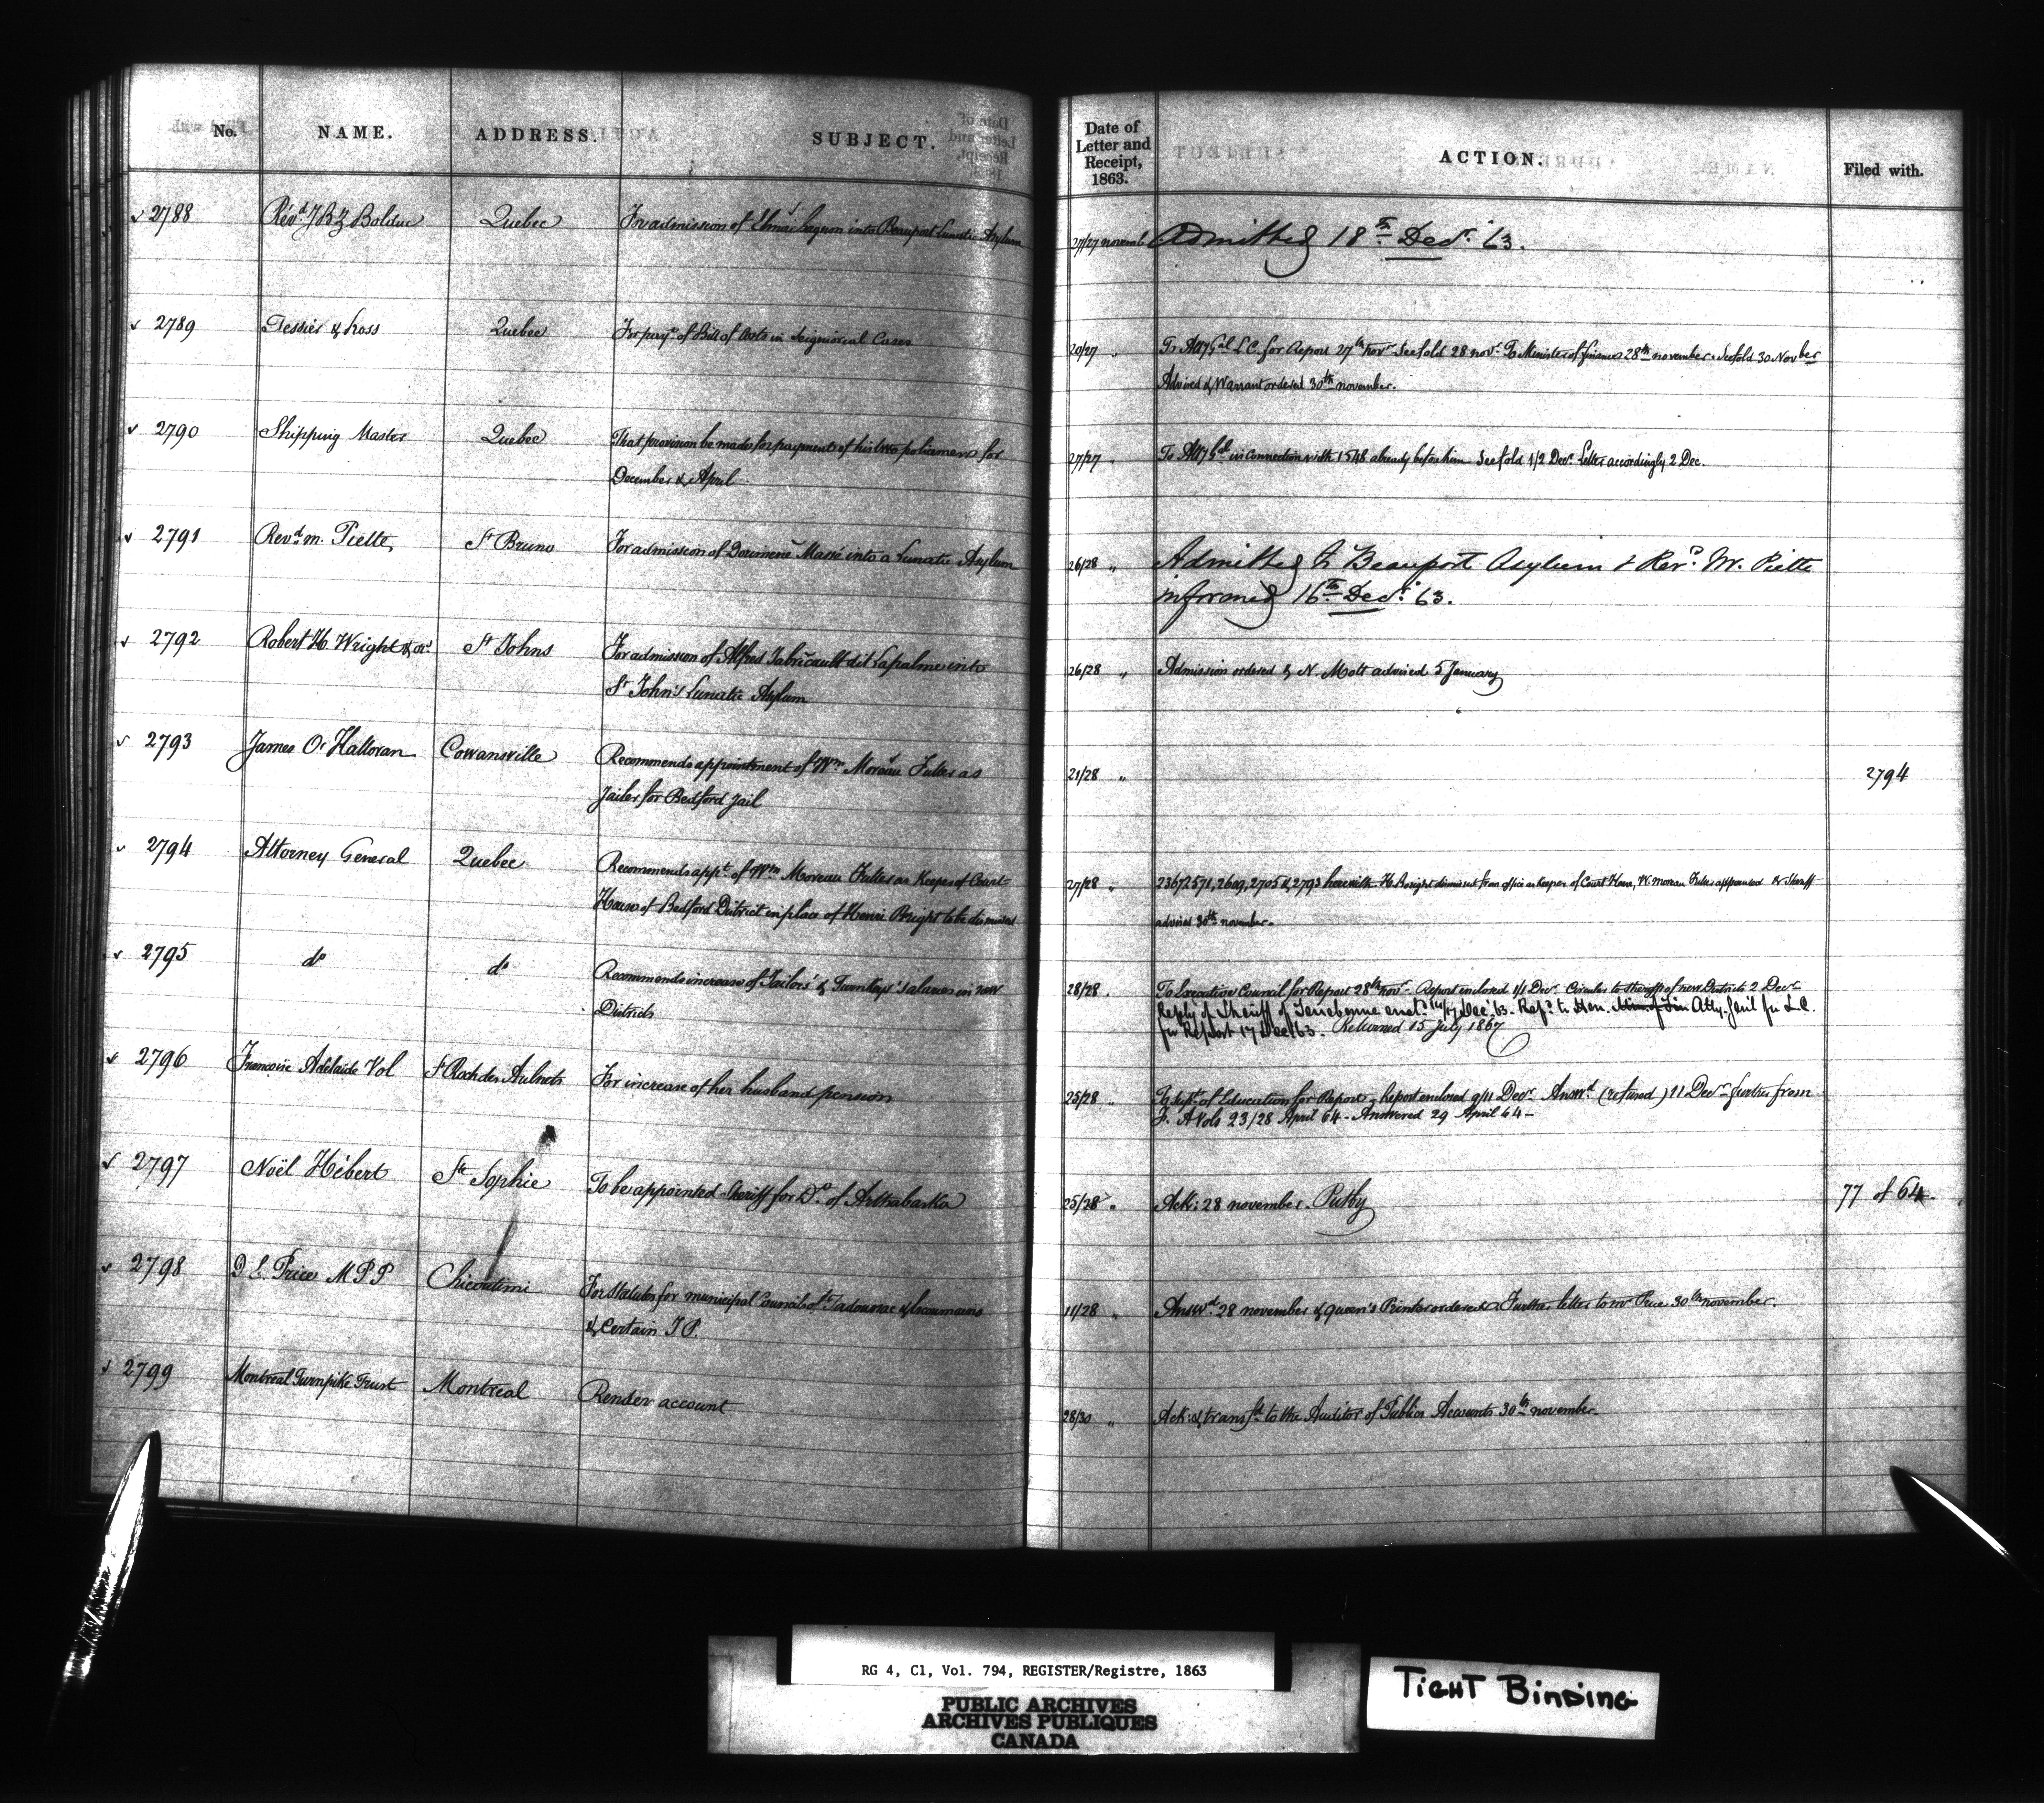 No. NAME. ADDRESS. SUBJECT.
Date of Letter and Receipt, 1863. ACTION. Filed with.
2788 Revd J B Z Bolduc Quebec For admission of into Beauport Lunatic Asylum 27/27 novemb Admitted 18th Decr. 63.
2789 Tessier & Ross Quebec For payt. of Bill of Costs in Seigniorial Cases 20/27 " To Atty Gal L.C. for Report 27th novr. See fold 28 novr. To Minister of finance 28th november. See fold 30 November
Advised & Warrant ordered 30th november.
2790 Shipping Master Quebec That provision be made for payment of his two policemen for 27/27 " To Atty Gal in connection with 1548 already before him See fold 1/2 Decr. Letter accordingly 2 Dec.
December & April
2791 Revd. m. Piette St Bruno For admission of Massé into a Lunatic Asylum 26/28 " Admitted to Beauport Asylum & Revd. Mr. Piette
informed 16th Decr. 63.
2792 Robert H. Wright & or St Johns For admission of Alfred dit Lapalme into 26/28 " Admission ordered & N. Mott advised 5 January
St John's Lunatic Asylum
2793 James O'Halloran Cowansville Recommends appointment of Wm Moreau Fuller as 21/28 " 2794
Jailer for Bedford Jail
2794 Attorney General Quebec Recommends appt. of Wm Moreau Fuller as Keeper of Court 27/28 " 2367 2571, 2609, 2705 & 2793 herewith. H. Bright dismissed from office as Keeper of Court House, W. Moreau Fuller appointed & Sheriff
House of Bedford District in place of Henri Bright to be dismissed advised 30th november.
2795 do do Recommends increase of Jailors' & Turnkeys' salaries in new 28/28 . To Executive Council for Report 28th novr. Report enclosed 1/1 Decr. Circular to sheriffs of new Districts 2 Decr
Districts Reply of Sheriff of Terrebonne encl. 14/17 Dec. 63. Refd. to Hon. Min. of Fin Atty. Genl for L.C.
for Report 17 Dec 63. Returned 15 July 1867
2796 Françoise Adelaide Vol St Roch des Aulnets For increase of her husband pension 25/28 " To Supt. of Education for Report. Report enclosed 9/11 Decr. Answd. (refused) 11 Decr. further from
F. A Vols 23/28 April 64 - Answered 29 April 64 -
2797 Noël Hébert Ste Sophie To be appointed Sheriff for Do. of Arthabaska 25/28 " Ack: 28 november. Put by 77 of 64.
2798 D E. Price M P P Chicoutimi For Statutes for municipal Councils of Tadousac & Escoumains 11/28 " Answd. 28 november & Queen's Printer ordered. Further letter to mr Price 30th november.
& Certain J P.
2799 Montreal Turnpike Trust Montreal Render account 28/30 " Ack: & transfd. to the Auditor of Public Accounts 30th november.
RG 4, C1, Vol. 794, REGISTER/Registre, 1863
PUBLIC ARCHIVES
ARCHIVES PUBLIQUES
CANADA
TIGHT BINDING